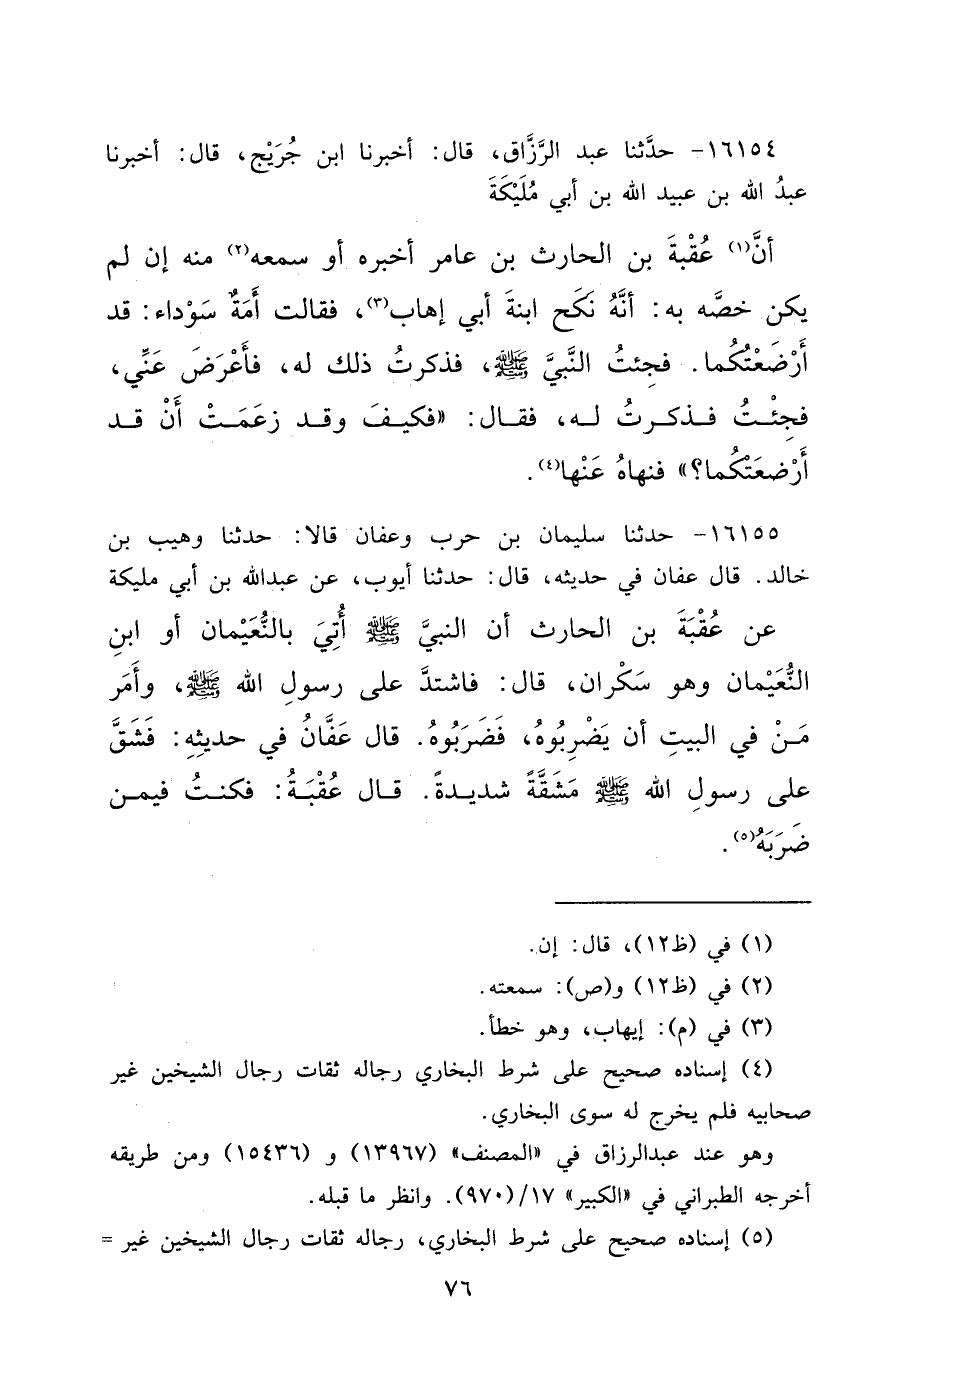 ١٦١٥٤- حدَّثنا عبد الرَّزَّاق، قال: أخبرنا ابن جُرَيْج، قال: أخبرنا
عبدُ الله بن عبيد الله بن أبي مُلَيْكَةَ
أنَّ(١) عُقْبةَ بن الحارث بن عامر أخبره أو سمعه(٢) منه إن لم
يكن خصَّه به: أنَّهُ نَكَح ابنةَ أبي إهاب(٣)، فقالت أَمَةٌ سَوْداء: قد
أَرْضَعْتُكُما. فجِئتُ النَّبيَّ ﷺ، فذكرتُ ذلك له، فأَعْرَضَ عَنِّي،
فجِئْتُ فذكرتُ له، فقال: «فكيفَ وقد زعَمَتْ أَنْ قد
أَرْضعَتْكُما؟» فنهاهُ عَنْها(٤).
١٦١٥٥- حدثنا سليمان بن حرب وعفان قالا: حدثنا وهيب بن
خالد. قال عفان في حديثه، قال: حدثنا أيوب، عن عبدالله بن أبي مليكة
عن عُقْبَةَ بن الحارث أن النبيَّ ﷺ أُتِيَ بالنُّعَيْمان أو ابنِ
النُّعَيْمان وهو سَكْران، قال: فاشتدَّ على رسولِ الله ﷺ، وأَمَر
مَنْ في البيتِ أن يَضْرِبُوهُ، فَضَرَبُوهُ. قال عَفَّانُ في حديثِهِ: فَشَقَّ
على رسولِ الله ﷺ مَشَقَّةً شديدةً. قال عُقْبَةُ: فكنتُ فيمن
ضَرَبَهُ(٥).
(١) في (ظ١٢)، قال: إن.
(٢) في (ظ١٢) و(ص): سمعته.
(٣) في (م): إيهاب، وهو خطأ.
(٤) إسناده صحيح على شرط البخاري رجاله ثقات رجال الشيخين غير
صحابيه فلم يخرج له سوى البخاري.
وهو عند عبدالرزاق في «المصنف» (١٣٩٦٧) و (١٥٤٣٦) ومن طريقه
أخرجه الطبراني في «الكبير» ١٧/(٩٧٠). وانظر ما قبله.
(٥) إسناده صحيح على شرط البخاري، رجاله ثقات رجال الشيخين غير =
٧٦